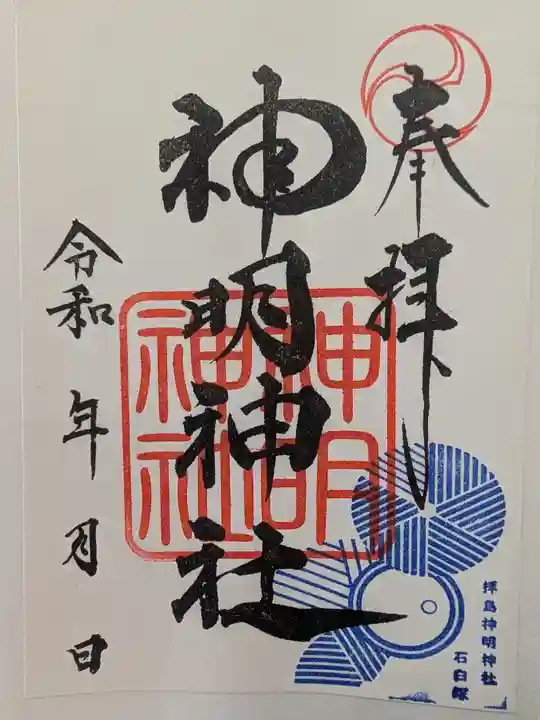 奉拝
神明神社
神明
神社
令和 年 月 日
拝島神明神社
石臼塚